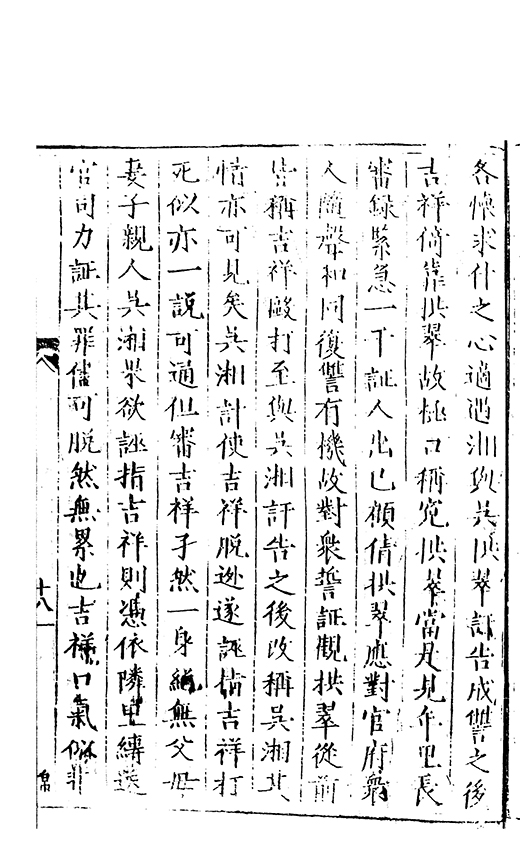 各懷求仆之心適遇湘與吳拱翠訐告成讐之後
吉祥倚靠拱翠故極口稱寃拱翠當是見年里長
審録緊急一干証人出已顧倩拱翠應對官府衆
人隨聲和同復讐有機故對衆誓証觀拱翠從前
皆稱吉祥毆打至與吳湘訐告之後改稱吳湘其
情亦可見矣吳湘計使吉祥脫逃遂誣指吉祥打
死似亦一說可通但審吉祥孑然一身絕無父母
妻子親人吳湘果欲誣指吉祥則憑依隣里縳送
官司力証其罪儘可脫然無累也吉祥口氣似非
十八